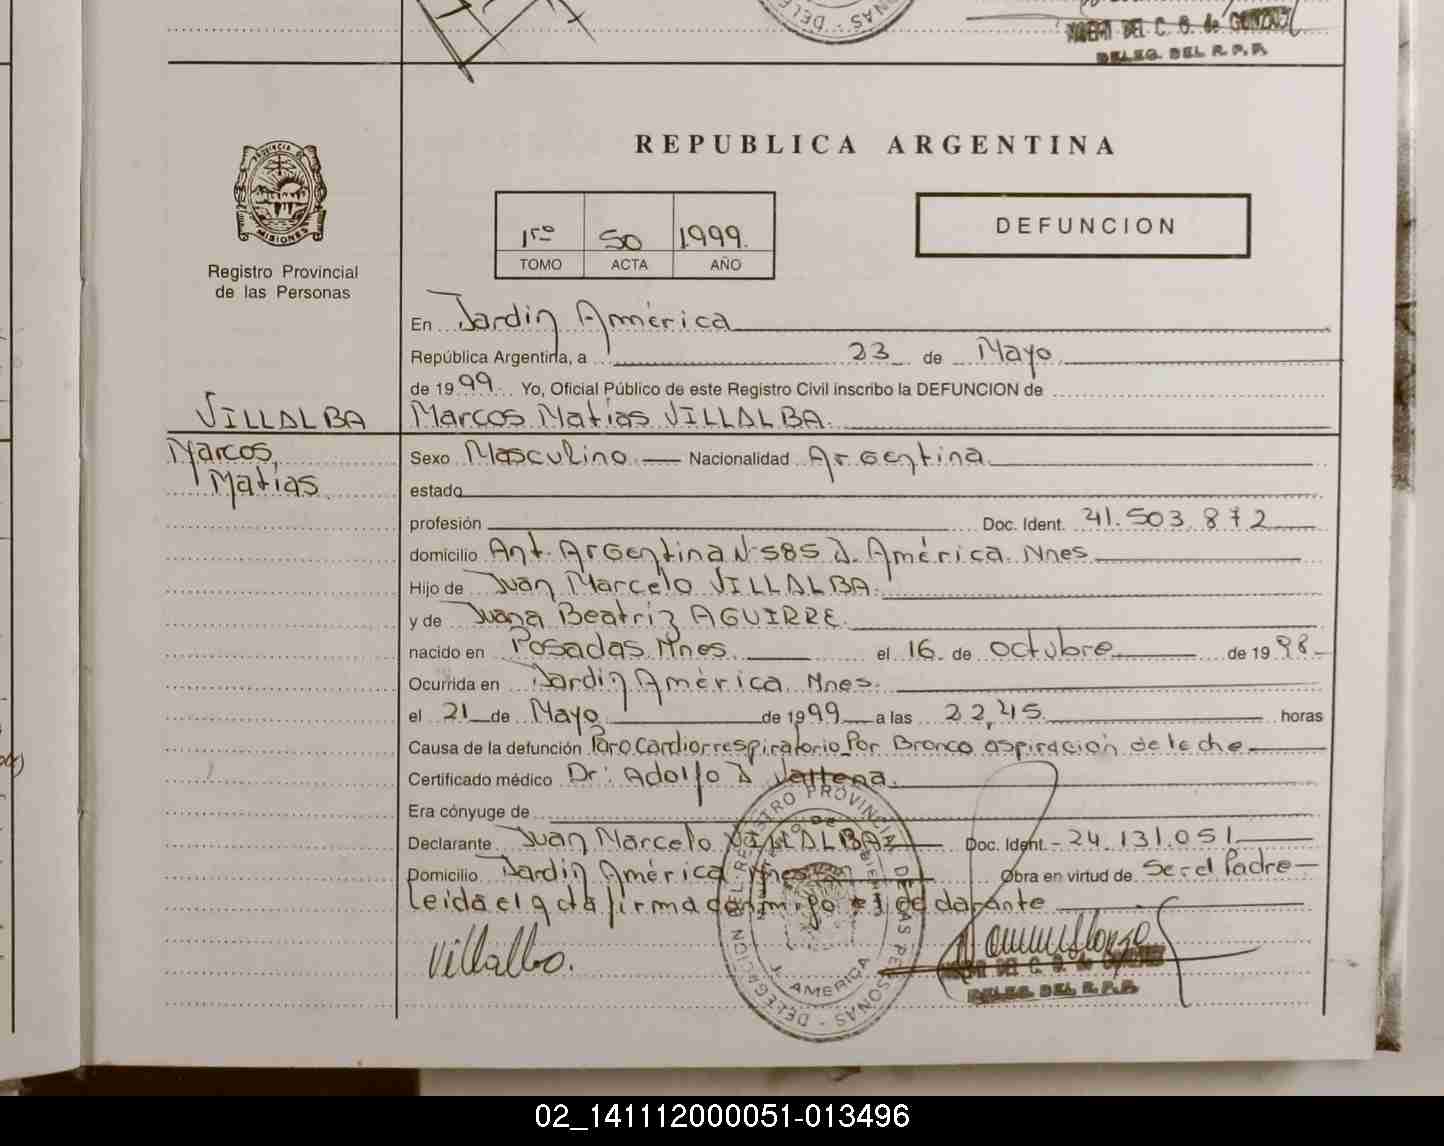 DELEG. DEL R. P. P.
REPUBLICA ARGENTINA
PROVINCIA DE
MISIONES
Registro Provincial
de las Personas
1ro 50 1999.
TOMO ACTA AÑO
DEFUNCION
En Jardin América
República Argentina, a 23 de Mayo
de 1999 Yo, Oficial Público de este Registro Civil inscribo la DEFUNCION de
VILLALBA Marcos Matías VILLALBA.
Marcos, Sexo Masculino Nacionalidad Argentina
Matias estado
profesión Doc. Ident. 41.503.872
domicilio Ant. Argentina N 585 J. América. Mnes
Hijo de Juan Marcelo VILLALBA.
y de Juana Beatriz AGUIRRE.
nacido en Posadas Mnes. el 16 de octubre de 1998
Ocurrida en Jardin América Mnes.
el 21 de Mayo de 1999 a las 22,45 horas
Causa de la defunción Paro Cardiorrespiratorio Por Bronco aspiración de leche
Certificado médico Dr: Adolfo D
Era cónyuge de
Declarante Juan Marcelo VILLALBA Doc. Ident. 24.131.051
Domicilio Jardin América Mnes Obra en virtud de Ser el Padre
Leida el acta firma conmigo el declarante
Villalba.
DELEGACION DEL REGISTRO PROVINCIAL DE LAS PERSONAS
J. AMERICA
DELEG. DEL R. P. P.
02_141112000051-013496